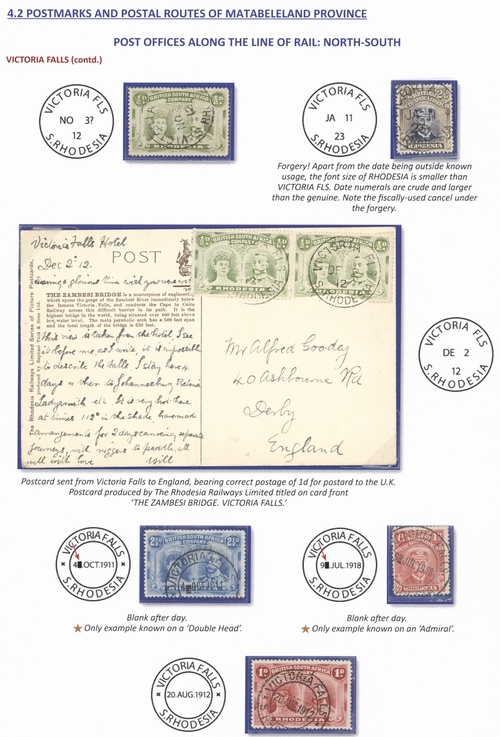 4.2 POSTMARKS AND POSTAL ROUTES OF MATABELELAND PROVINCE
POST OFFICES ALONG THE LINE OF RAIL: NORTH-SOUTH
VICTORIA FALLS (contd.)
VICTORIA FLS
NO 3?
12
S.RHODESIA
½d
½d
BRITISH SOUTH AFRICA
COMPANY
VICTORIA FLS
JA 11
23
S.RHODESIA
Forgery! Apart from the date being outside known
usage, the font size of RHODESIA is smaller than
VICTORIA FLS. Date numerals are crude and larger
than the genuine. Note the fiscally-used cancel under
the forgery.
Victoria Falls Hotel
Dec 2nd 12.
POST
Having a glorious time wish you were
THE ZAMBESI BRIDGE is a masterpiece of engineering
which spans the gorge of the Zambesi River immediately below
the famous Victoria Falls, and conducts the Cape to Cairo
Railway across this difficult barrier in its path. It is the
highest bridge in the world, being elevated over 400 feet above
low water level. The main parabolic arch has a 500 feet span
and the total length of the bridge is 650 feet.
This view is taken from the hotel, I see
it before me, as I write, it is impossible
to describe the Falls I stay here 4
days & then to Johannesburg Pretoria
Ladysmith etc. It is very hot here
at times 113° in the shade have made
arrangements for 2 days canoeing separate
journeys, with niggers to paddle, all
well with love Will
The Rhodesia Railways Limited Series of Picture Postcards.
½d
½d
½d
½d
BRITISH SOUTH AFRICA
COMPANY
VICTORIA FLS
DE 2
12
S.RHODESIA
Mr Alfred Goodey
40 Ashbourne Rd
Derby
England
VICTORIA FLS
DE 2
12
S.RHODESIA
Postcard sent from Victoria Falls to England, bearing correct postage of 1d for postard to the U.K.
Postcard produced by The Rhodesia Railways Limited titled on card front
'THE ZAMBESI BRIDGE. VICTORIA FALLS.'
VICTORIA FALLS
4 OCT.1911
S.RHODESIA
2½d
2½d
BRITISH SOUTH AFRICA
COMPANY
Blank after day.
Only example known on a 'Double Head'.
VICTORIA FALLS
9 JUL.1918
S.RHODESIA
Blank after day.
Only example known on an 'Admiral'.
VICTORIA FALLS
20.AUG.1912
S.RHODESIA
1d
1d
BRITISH SOUTH AFRICA
COMPANY
VICTORIA FALLS
20.AUG.1912
S.RHODESIA